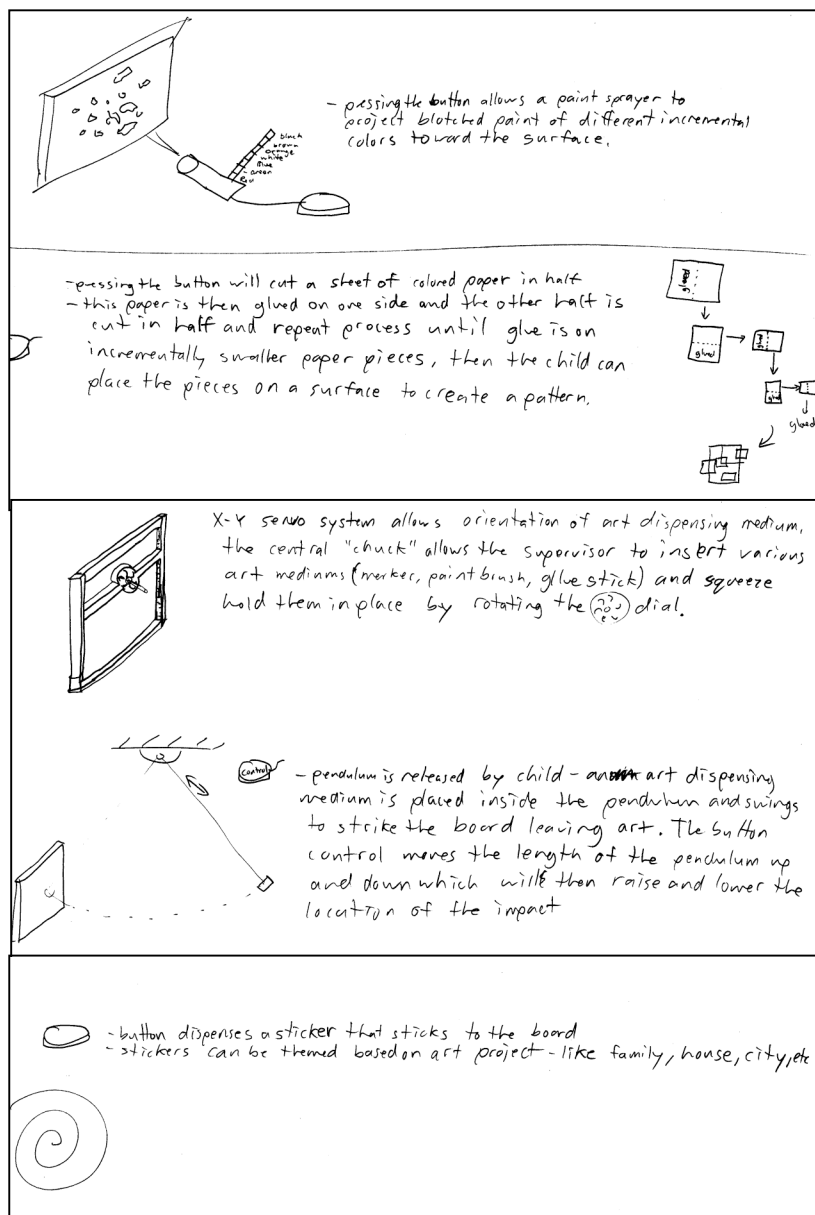 - pressing the button allows a paint sprayer to
project blotched paint of different incremental
colors toward the surface.
black
brown
orange
white
blue
green
red
- pressing the button will cut a sheet of colored paper in half
- this paper is then glued on one side and the other half is
cut in half and repeat process until glue is on
incrementally smaller paper pieces, then the child can
place the pieces on a surface to create a pattern.
glued
glued
glued
glued
glued
X-Y servo system allows orientation of art dispensing medium,
the central "chuck" allows the supervisor to insert various
art mediums (marker, paint brush, glue stick) and squeeze
hold them in place by rotating the dial.
control
- pendulum is released by child - art dispensing
medium is placed inside the pendulum and swings
to strike the board leaving art. The button
control moves the length of the pendulum up
and down which will then raise and lower the
location of the impact
- button dispenses a sticker that sticks to the board
- stickers can be themed based on art project - like family, house, city, etc